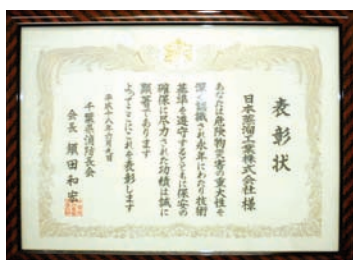 表彰状
日本蒸溜工業株式会社 様
あなたは危険物災害の重大性を
深く認識され永年にわたり技術
基準を遵守するとともに保安の
確保に尽力された功績は誠に
顕著であります
よってここにこれを表彰します
平成十八年六月 日
千葉県消防長会
会長 鎭田和宏